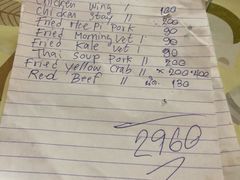 Chicken Wing 1 100
Chicken Soay 11 200
Fried Hee Pi Pork 90
Fried Morning Vet 1 90
Fried Kale Vet 1 90
Thai Soup Pork 11 200
Fried Yellow Crab 11 x 200 400
Red Beef 11 130
2960